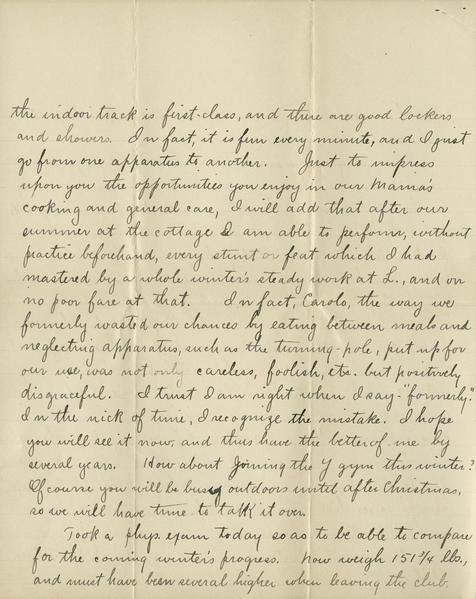 the indoor track is first-class, and there are good lockers
and showers. In fact, it is fun every minute, and I just
go from one apparatus to another. Just to impress
upon you the opportunities you enjoy in our Mama's
cooking and general care, I will add that after our
summer at the cottage I am able to perform, without
practice beforehand, every stunt or feat which I had
mastered by a whole winter's steady work at L., and on
no poor fare at that. In fact, Carolo, the way we
formerly wasted our chances by eating between meals and
neglecting apparatus, such as the turning-pole, put up for
our use, was not only careless, foolish, etc. but positively
disgraceful. I trust I am right when I say - "formerly."
In the nick of time, I recognize the mistake. I hope
you will see it now, and thus have the better of me by
several years. How about joining the Y gym this winter?
Of course you will be busy outdoors until after Christmas,
so we will have time to talk it over.
Took a phys. exam today so as to be able to compare
for the coming winter's progress. Now weigh 151 1/4 lbs.,
and must have been several higher when leaving the club.